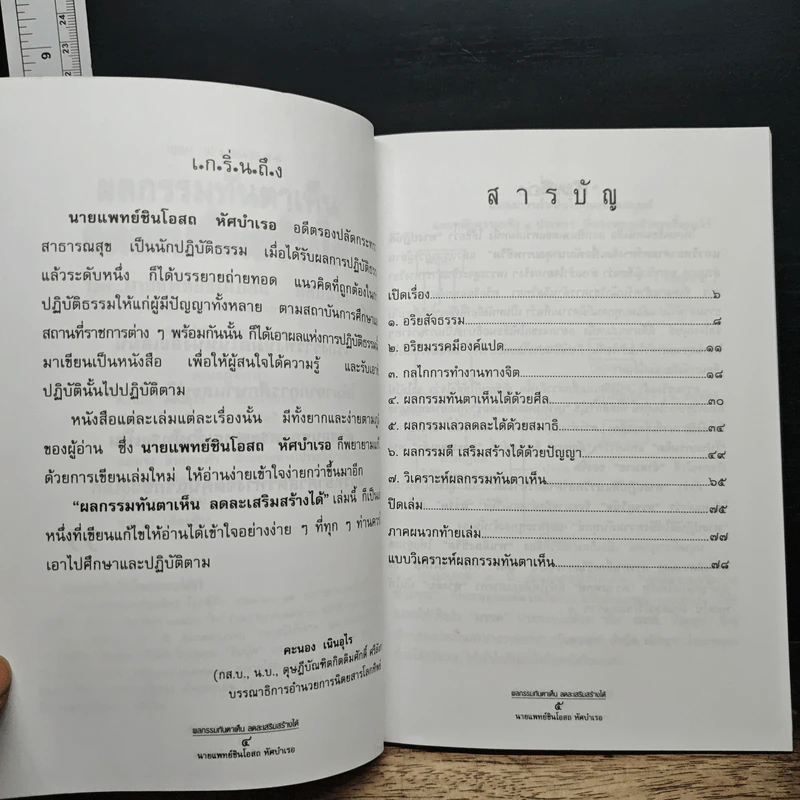 9
23
24
เ.ก.ริ่.น.ถึ.ง
นายแพทย์ชินโอสถ หัศบำเรอ อดีตรองปลัดกระทรวง
สาธารณสุข เป็นนักปฏิบัติธรรม เมื่อได้รับผลการปฏิบัติธรรม
แล้วระดับหนึ่ง ก็ได้บรรยายถ่ายทอด แนวคิดที่ถูกต้อง
ปฏิบัติธรรมให้แก่ผู้มีปัญญาทั้งหลาย ตามสถาบันการศึกษา
สถานที่ราชการต่าง ๆ พร้อมกันนั้น ก็ได้เอาผลแห่งการปฏิบัติธรรม
มาเขียนเป็นหนังสือ เพื่อให้ผู้สนใจได้ความรู้ และรับเอา
ปฏิบัตินั้นไปปฏิบัติตาม
หนังสือแต่ละเล่มแต่ละเรื่องนั้น มีทั้งยากและง่ายตาม
ของผู้อ่าน ซึ่ง นายแพทย์ชินโอสถ หัศบำเรอ ก็พยายาม
ด้วยการเขียนเล่มใหม่ ให้อ่านง่ายเข้าใจง่ายกว่าขึ้นมาอีก
“ผลกรรมทันตาเห็น ลดละเสริมสร้างได้” เล่มนี้ ก็เป็น
หนึ่งที่เขียนแก้ไขให้อ่านได้เข้าใจอย่างง่าย ๆ ที่ทุก ๆ ท่านควร
เอาไปศึกษาและปฏิบัติตาม
คะนอง เนินอุไร
(กส.บ., น.บ., ดุษฎีบัณฑิตกิตติมศักดิ์
บรรณาธิการอำนวยการนิตยสารโลกทิพย์
ผลกรรมทันตาเห็น ลดละเสริมสร้างได้
๔
นายแพทย์ชินโอสถ หัศบำเรอ
สารบัญ
เปิดเรื่อง................๖
๑. อริยสัจธรรม................๘
๒. อริยมรรคมีองค์แปด................๑๑
๓. กลไกการทำงานทางจิต................๑๘
๔. ผลกรรมทันตาเห็นได้ด้วยศีล................๓๐
๕. ผลกรรมเลวลดละได้ด้วยสมาธิ................๓๔
๖. ผลกรรมดี เสริมสร้างได้ด้วยปัญญา................๔๙
๗. วิเคราะห์ผลกรรมทันตาเห็น................๖๕
ปิดเล่ม................๗๕
ภาคผนวกท้ายเล่ม................๗๗
แบบวิเคราะห์ผลกรรมทันตาเห็น................๗๘
ผลกรรมทันตาเห็น ลดละเสริมสร้างได้
๕
นายแพทย์ชินโอสถ หัศบำเรอ